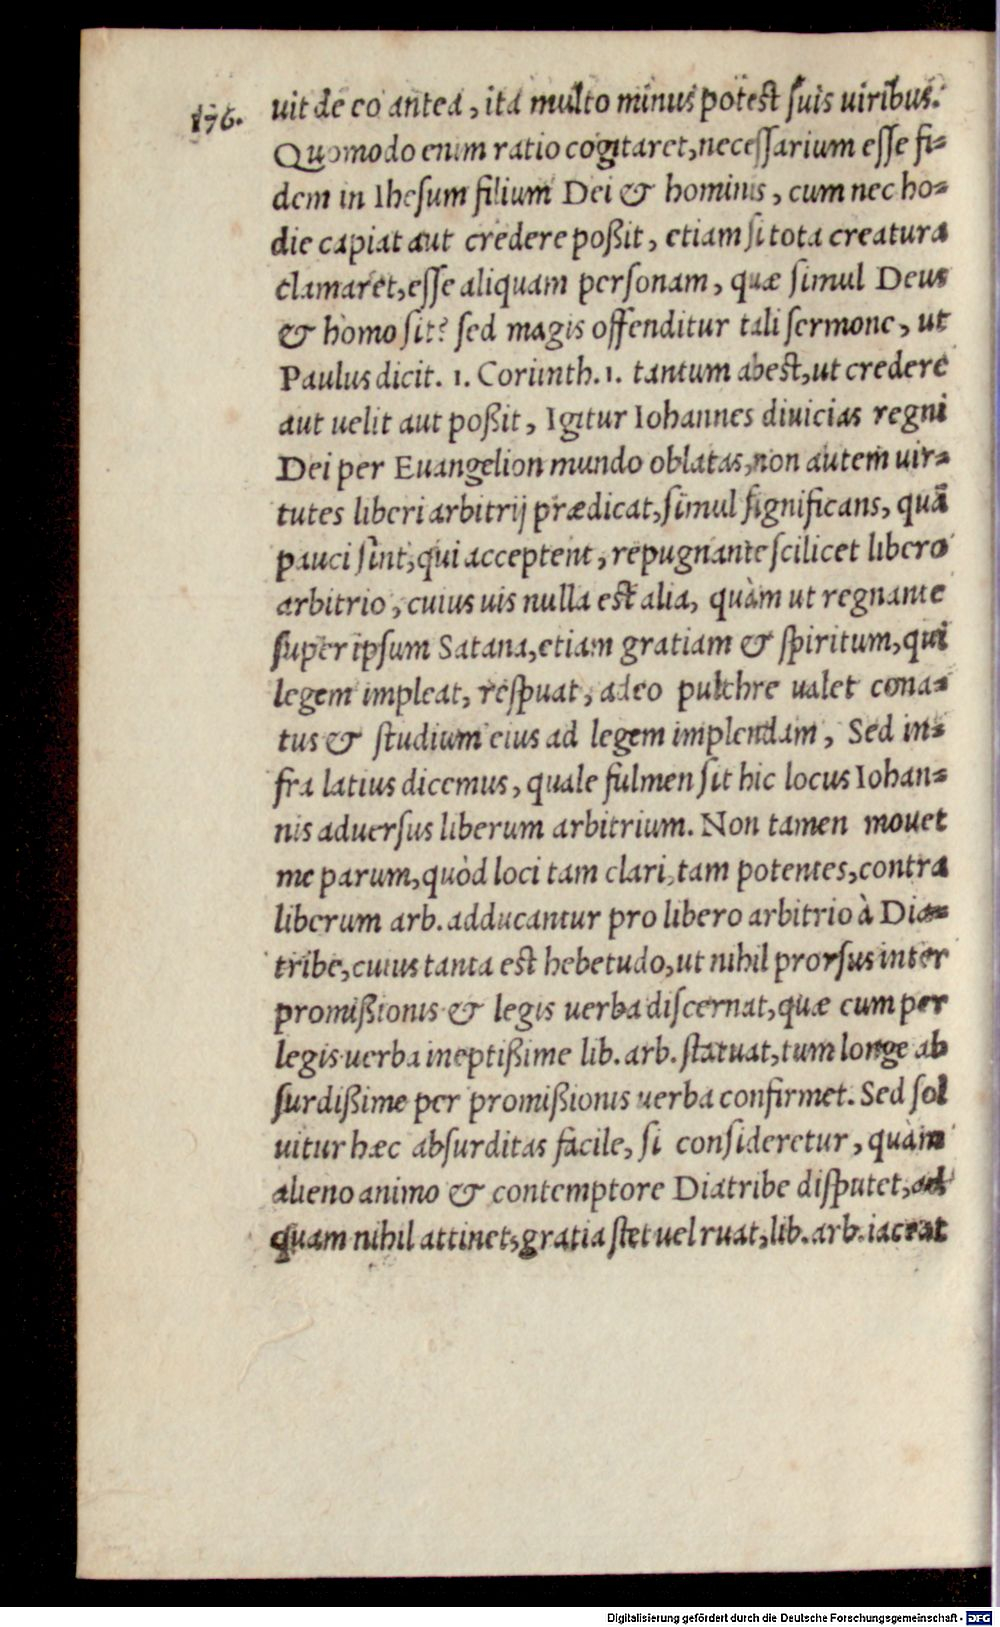 176.
uit de eo antea, ita multo minus potest suis uiribus.
Quomodo enim ratio cogitaret, necessarium esse fi-
dem in Ihesum filium Dei & hominis, cum nec ho-
die capiat aut credere poßit, etiam si tota creatura
clamaret, esse aliquam personam, quæ simul Deus
& homo sit? sed magis offenditur tali sermone, ut
Paulus dicit. 1. Corinth. 1. tantum abest, ut credere
aut uelit aut poßit, Igitur Iohannes diuicias regni
Dei per Euangelion mundo oblatas, non autem uir-
tutes liberi arbitrij prædicat, simul significans, quā
pauci sint, qui acceptent, repugnante scilicet libero
arbitrio, cuius uis nulla est alia, quàm ut regnante
super ipsum Satana, etiam gratiam & spiritum, qui
legem impleat, respuat, adeo pulchre ualet cona-
tus & studium eius ad legem implendam, Sed in-
fra latius dicemus, quale fulmen sit hic locus Iohan-
nis aduersus liberum arbitrium. Non tamen mouet
me parum, quòd loci tam clari, tam potentes, contra
liberum arb. adducantur pro libero arbitrio à Dia-
tribe, cuius tanta est hebetudo, ut nihil prorsus inter
promißionis & legis uerba discernat, quæ cum per
legis uerba ineptißime lib. arb. statuat, tum longe ab
surdißime per promißionis uerba confirmet. Sed sol
uitur hæc absurditas facile, si consideretur, quàm
alieno animo & contemptore Diatribe disputet, ad
quam nihil attinet, gratia stet uel ruat, lib. arb. iaceat
Digitalisierung gefördert durch die Deutsche Forschungsgemeinschaft - DFG